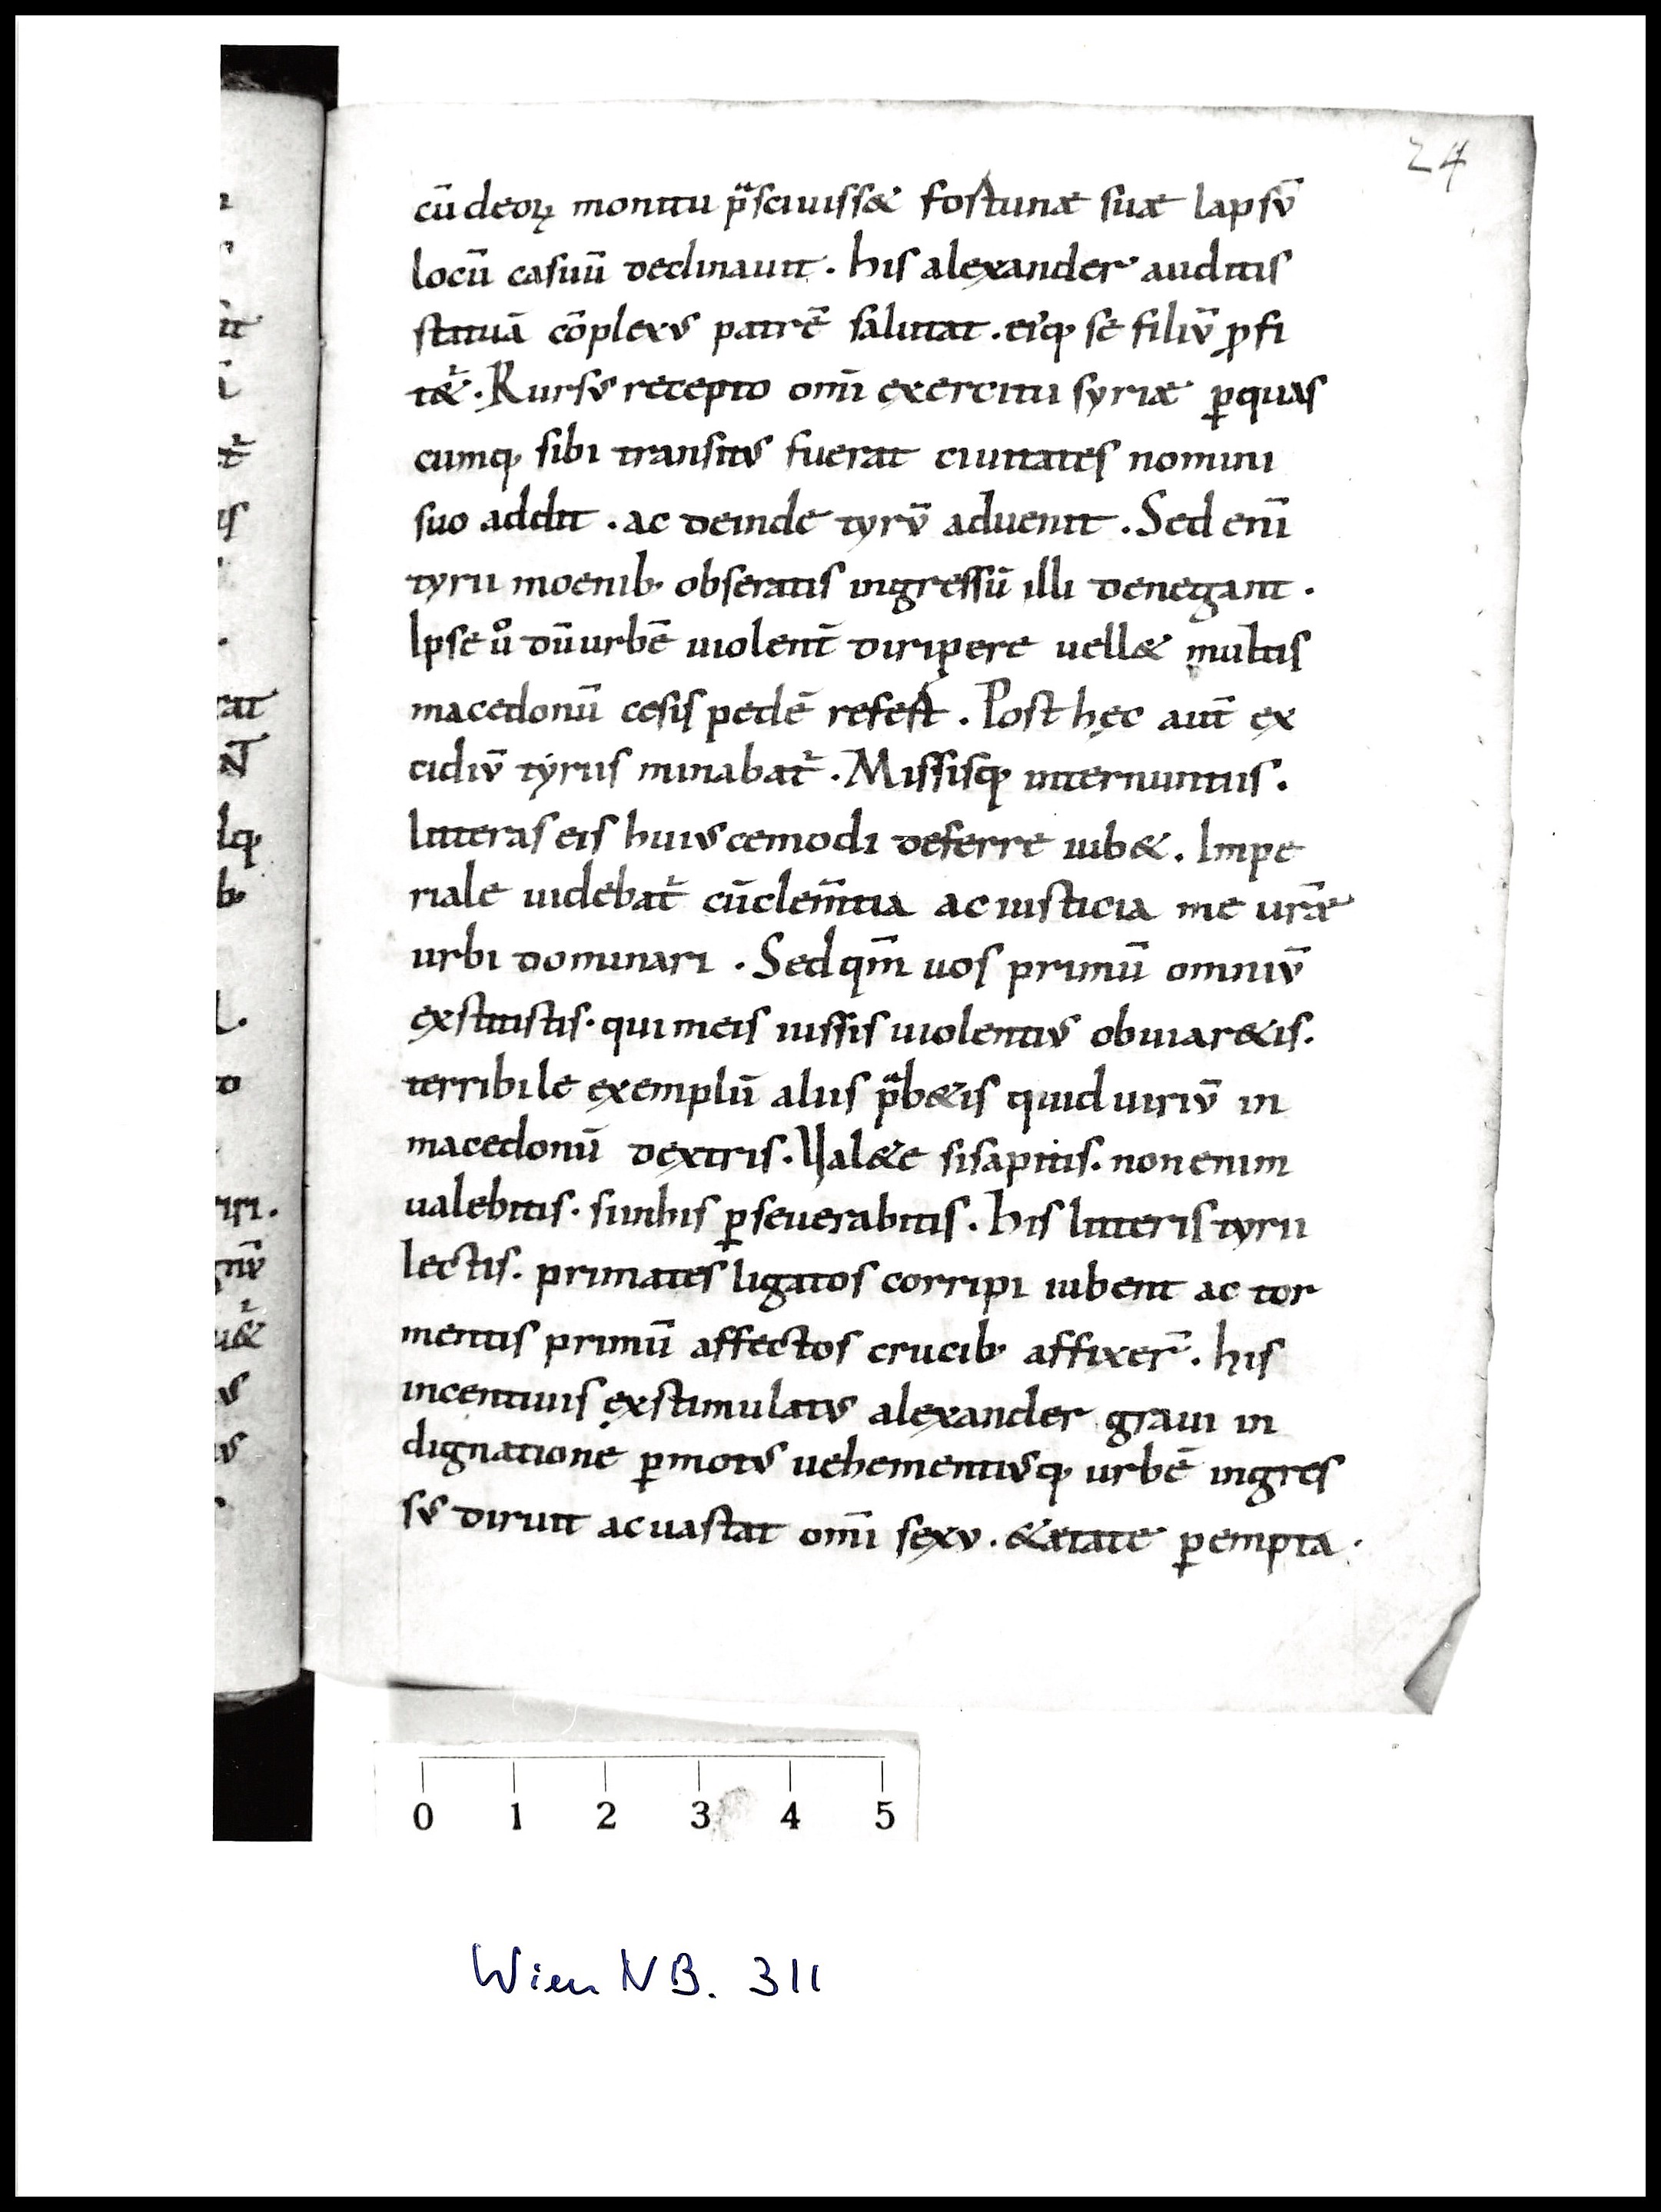 24
cū deoꝝ monitu p̃sciuiss& fortunæ suæ lapsū
locū casuū declinauit. his alexander auditis
statuā cōplexus patrē salutat. eiq; se filiū ꝓfi
t&ur. Rursus recepto om̄i exercitu syriæ ꝑquas
cumq; sibi transitus fuerat ciuitates nomini
suo addit. ac deinde tyrū aduenit. Sed eni̅
tyrii moenib; obseratis ingressū illi denegant.
Ipse ů dū urbē uiolent̄ diripere uell& multis
macedonū cesis pedē refert. Post hęc aut̄ ex
cidiū tyriis minabat᷑. Missisq; internuntiis.
litteras eis huiuscemodi deferre iub&. Impe
riale uidebat᷑ cū clem̄tia ac iusticia me ur̄æ
urbi dominari. Sed qm̄ uos primū omniū
exstitistis. qui meis iussis uiolentius obuiar&is.
terribile exemplū aliis p̃b&is quid uiriū in
macedonū dextris. Ual&e si sapitis. non enim
ualebitis. si in his ꝑseuerabitis. his litteris tyrii
lectis. primates ligatos corripi iubent ac tor
mentis primū affectos crucib; affixer̄. his
incentiuis exstimulatus alexander graui in
dignatione ꝑmotus uehementiusq; urbē ingres
sus diruit ac uastat om̄i sexu. &ætate ꝑempta.
0 1 2 3 4 5
Wien NB. 311